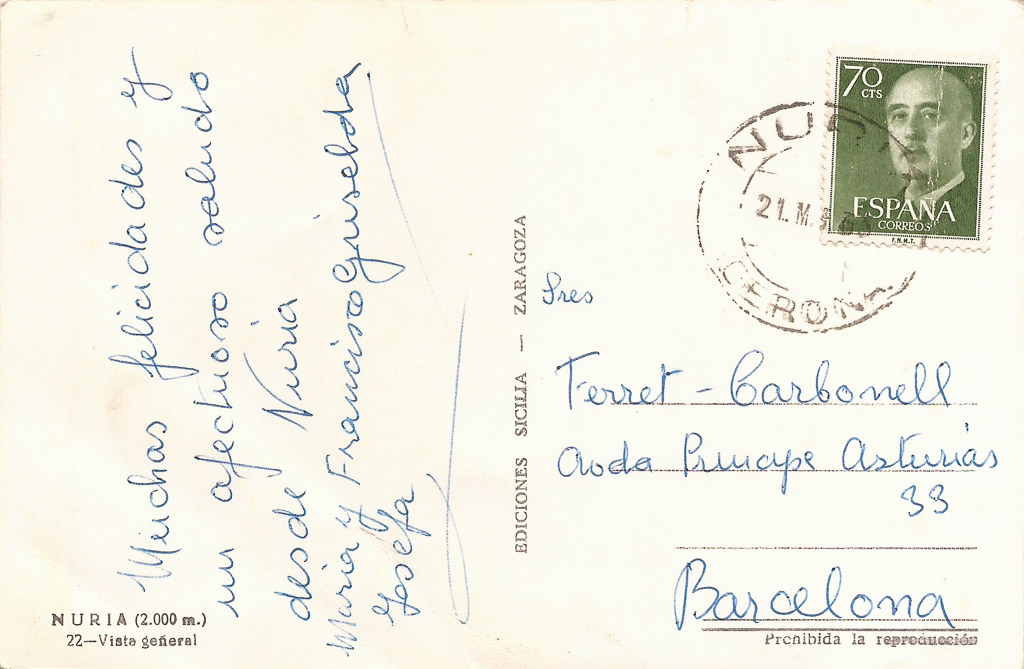 Muchas felicidades y
un afectuoso saludo
desde Nuria
Maria y Francisco Griselda
y Josefa
NURIA (2.000 m.)
22—Vista general
EDICIONES SICILIA — ZARAGOZA
70
CTS
ESPAÑA
CORREOS
F.N.M.T.
NURIA
21. M
GERONA
Sres
Ferret - Carbonell
Avda Principe Asturias
33
Barcelona
Prohibida la reproducción